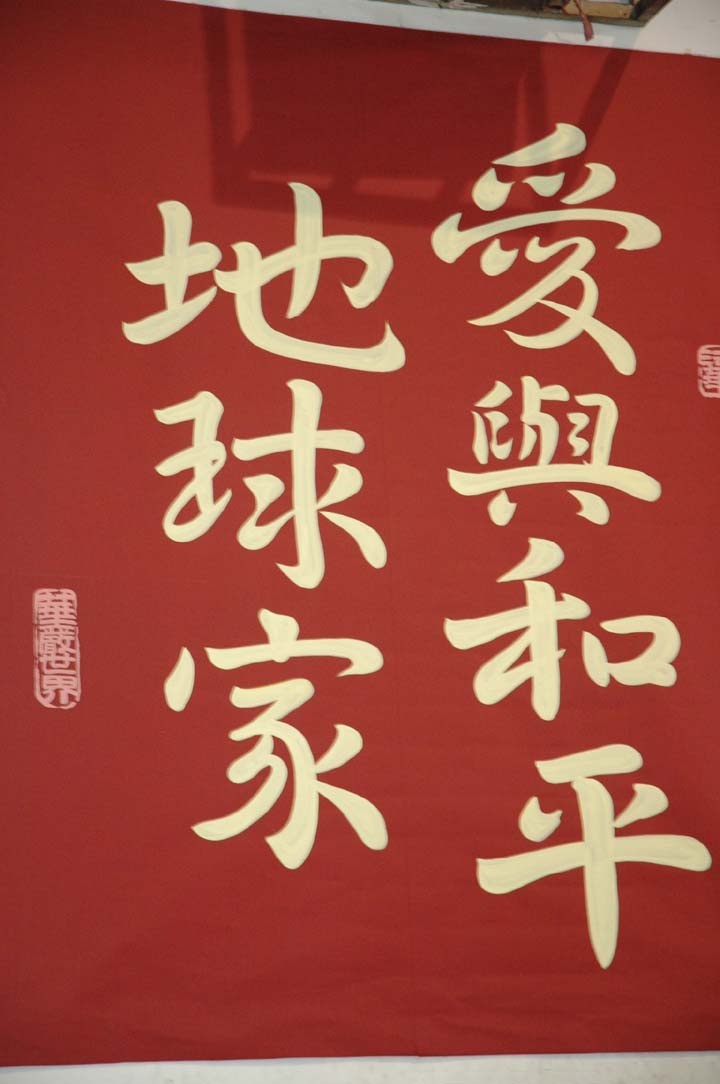 愛與和平
地球家
華嚴世界